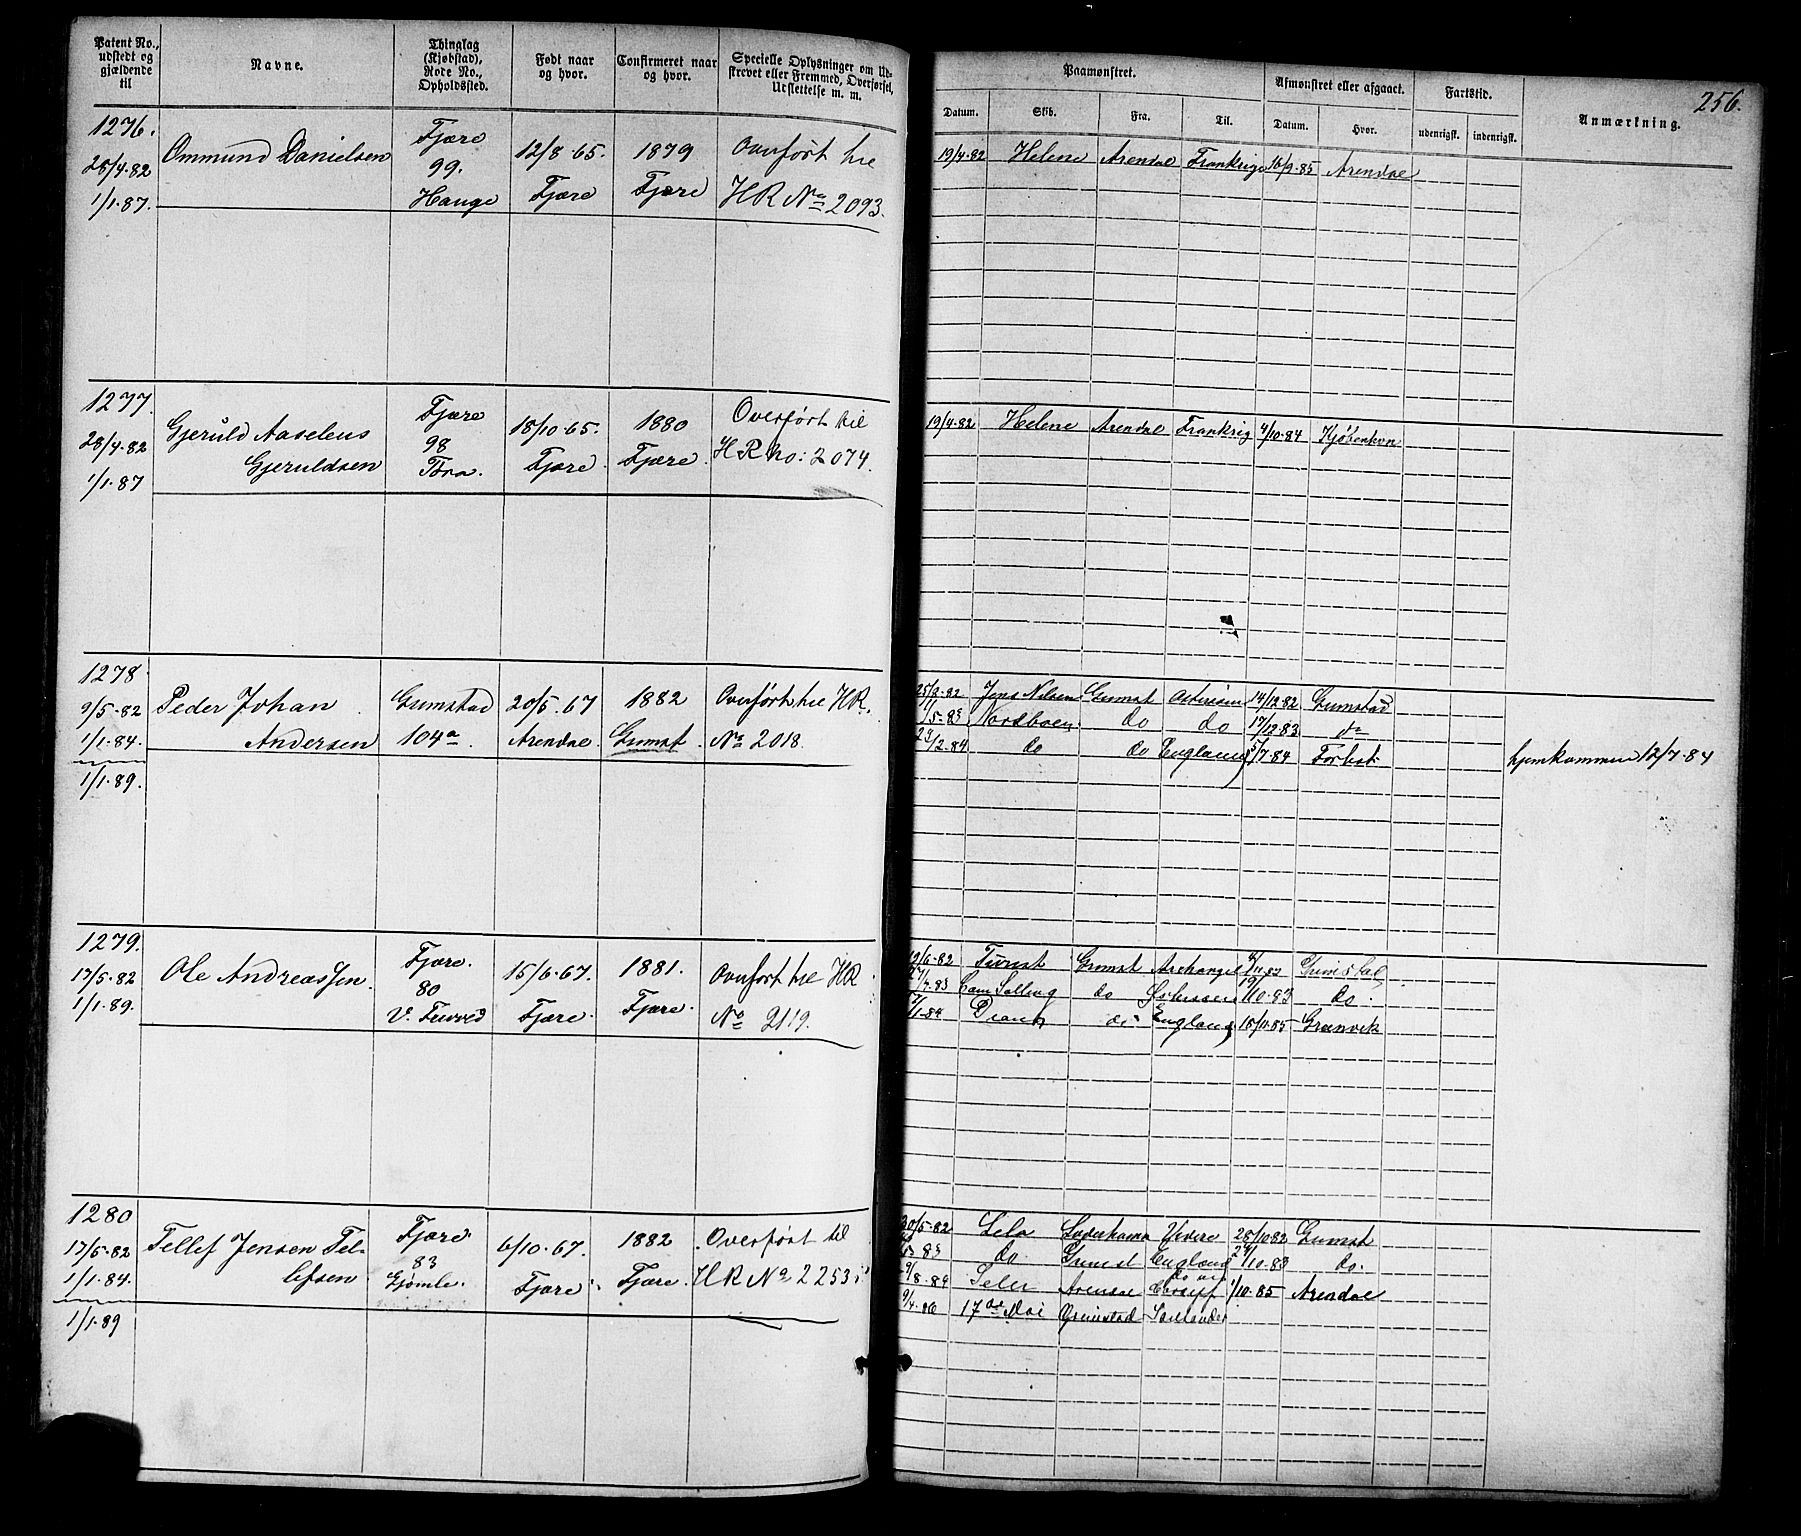 Patent No., udstedt og gjældende til
Navne.
Thinglag (Kjøbstad), Rode No., Opholdssted.
Født naar og hvor.
Confirmeret naar og hvor.
Specielle Oplysninger om Udskrevet eller Fremmed, Overførsel, Udslettelse m. m.
Paamønstret.
Afmønstret eller afgaaet.
Fartstid.
Anmærkning.
256.
Datum.
Skib.
Fra.
Til.
Datum.
Hvor.
udenrigsk.
indenrigsk.
1276. Fjære
Ommund Danielsen 12/8 65. 1879 Overført til
28/4 82 99.
1/1 87. Hauge Fjære Fjære HR No 2093.
19/4 82 Helene Arendal Frankrige 16/9 85 Arendal
1277. Fjære
Gjeruld Aaselius 18/10 65. 1880 Overført til
28/4 82 98
Gjeruldsen Fjære Fjære HR no: 2074.
1/1 87
19/4 82 Helene Arendal Frankrig 4/10 84 Kjøbenhvn
1278.
Peder Johan Grimstad 20/5 67 1882 Overført til HR.
9/5 82
Andersen 104a Arendal Grimst No 2018.
1/1 84.
1/1 89.
25/3 82 Jens Nilsen Grimst 14/12 82 Grimstad
Nordboen do do 17/12 83 do
23/2 84 do do England 5/7 84 Forlist hjemkommen 12/7 84
1279. Fjære.
17/5 82 Ole Andreassen 80 15/6 67. 1881. Overført til HR
1/1 89. Fjære Fjære No 2119.
19/6 82 Grimst Archangel Grimstad
83 do 10 83 do.
1/84 do England 18/11 85
1280 Fjære
17/5 82 Tellef Jensen Tel- 83 6/10 67. 1882 Overført til
1/1 84. lefsen Gjømle. Fjære Fjære. HR No 2253
1/1 89
30/5 82 28/10 82 Grimst
83 do. Grimst England 10 83 do.
9/8 84 Arendal 1/10 85 Arendal
9/4 86 17de Mai Grimstad